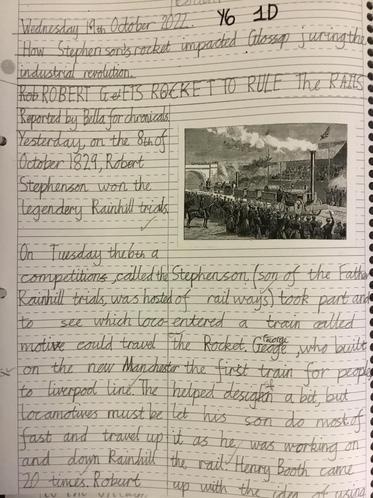 Wednesday 19th October 2022
Y6 1D
How Stephenson's rocket impacted Glossop juring the
industrial revolution.
Rob ROBERT GetS ROCKET TO RULE The RAILS
Reported by Bella for chronicals
Yesterday, on the 8th of
October 1829, Robert
Stephenson won the
legendery Rainhill trials.
On Tuesday the 6th a
competitions, called the
Rainhill trials, was hosted
to see which loco-
motive could travel
on the new Manchester
to liverpool line. The
locamotives must be
fast and travel up
and down Rainhill
20 times. Robert
Stephenson. (son of the Father
of railways) took part and
entered a train called
The Rocket. Geoge George, who built
the first train for people
helped design it a bit, but
let his son do most of
it as he was working on
the rail. Henry Booth came
up with the idea of using